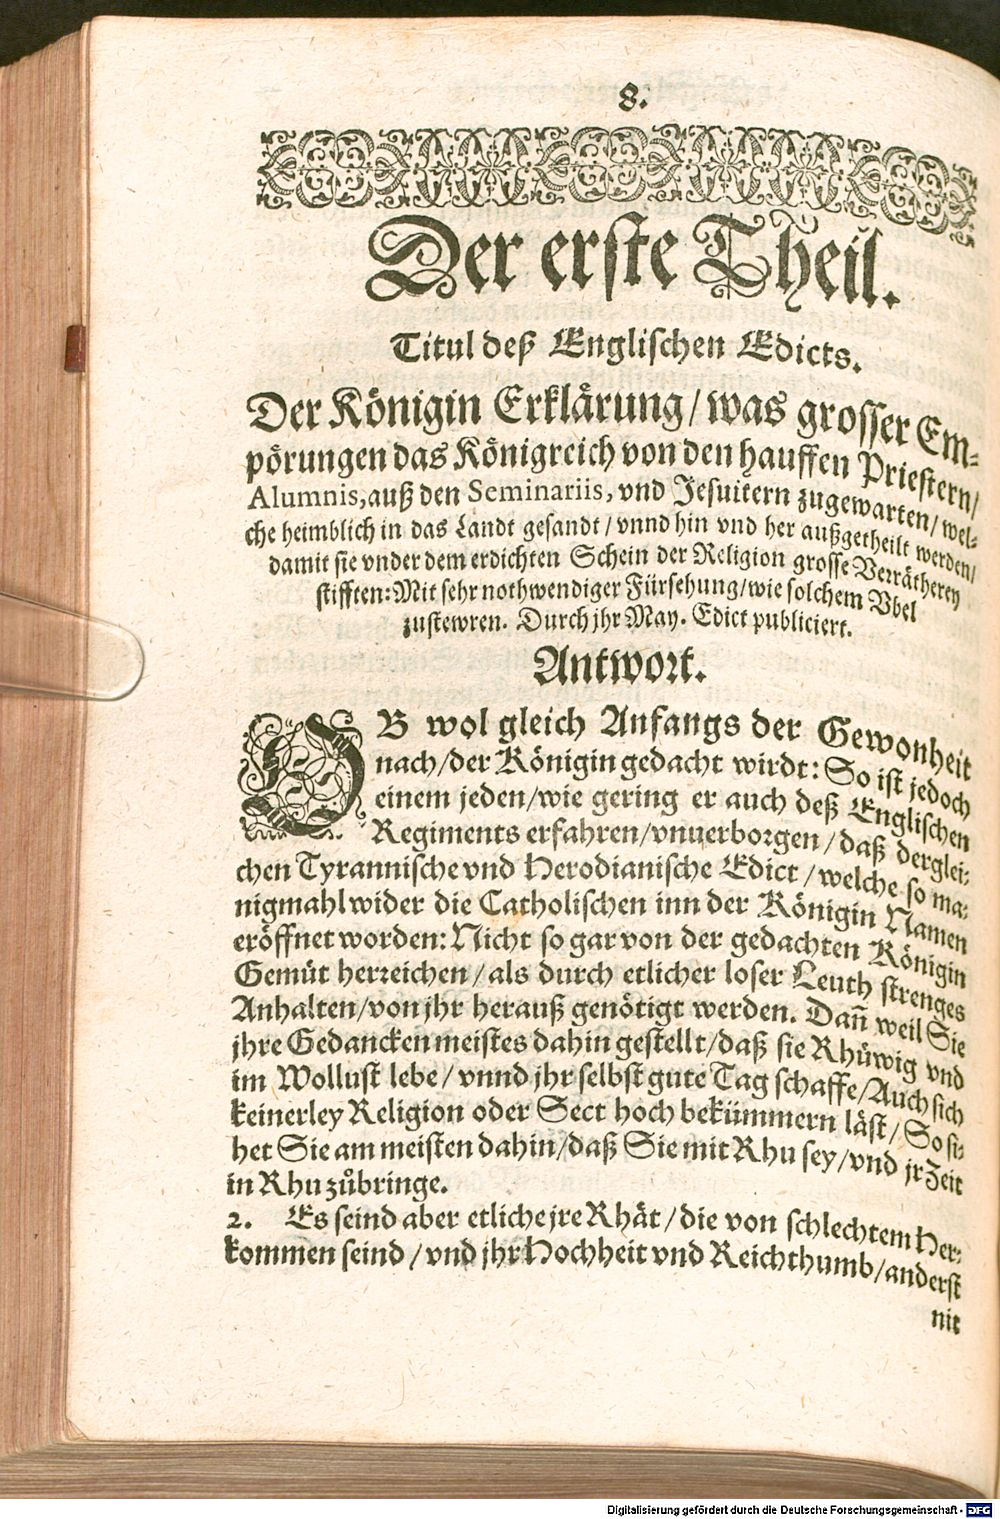 8.
Der erste Theil.
Titul deß Englischen Edicts.
Der Königin Erklärung/ was grosser Em-
pörungen das Königreich von den hauffen Priestern/
Alumnis, auß den Seminariis, vnd Jesuitern zugewarten/ wel-
che heimblich in das Landt gesandt/ vnnd hin vnd her außgetheilt werden/
damit sie vnder dem erdichten Schein der Religion grosse Verrätherey
stifften: Mit sehr nothwendiger Fürsehung/ wie solchem Vbel
zustewren. Durch jhr May. Edict publiciert.
Antwort.
OB wol gleich Anfangs der Gewonheit
nach/ der Königin gedacht wirdt: So ist jedoch
einem jeden/ wie gering er auch deß Englischen
Regiments erfahren/ vnuerborgen/ daß derglei-
chen Tyrannische vnd Herodianische Edict/ welche so ma-
nigmahl wider die Catholischen inn der Königin Namen
eröffnet worden: Nicht so gar von der gedachten Königin
Gemüt herreichen/ als durch etlicher loser Leuth strenges
Anhalten/ von jhr herauß genötigt werden. Dañ weil Sie
jhre Gedancken meistes dahin gestellt/ daß sie Rhüwig vnd
im Wollust lebe/ vnnd jhr selbst gute Tag schaffe/ Auch sich
keinerley Religion oder Sect hoch bekümmern läst/ So si-
het Sie am meisten dahin/ daß Sie mit Rhu sey/ vnd jr Zeit
in Rhu zůbringe.
2. Es seind aber etliche jre Rhät/ die von schlechtem Her-
kommen seind/ vnd jhr Hochheit vnd Reichthumb/ anderst
nit
Digitalisierung gefördert durch die Deutsche Forschungsgemeinschaft - DFG